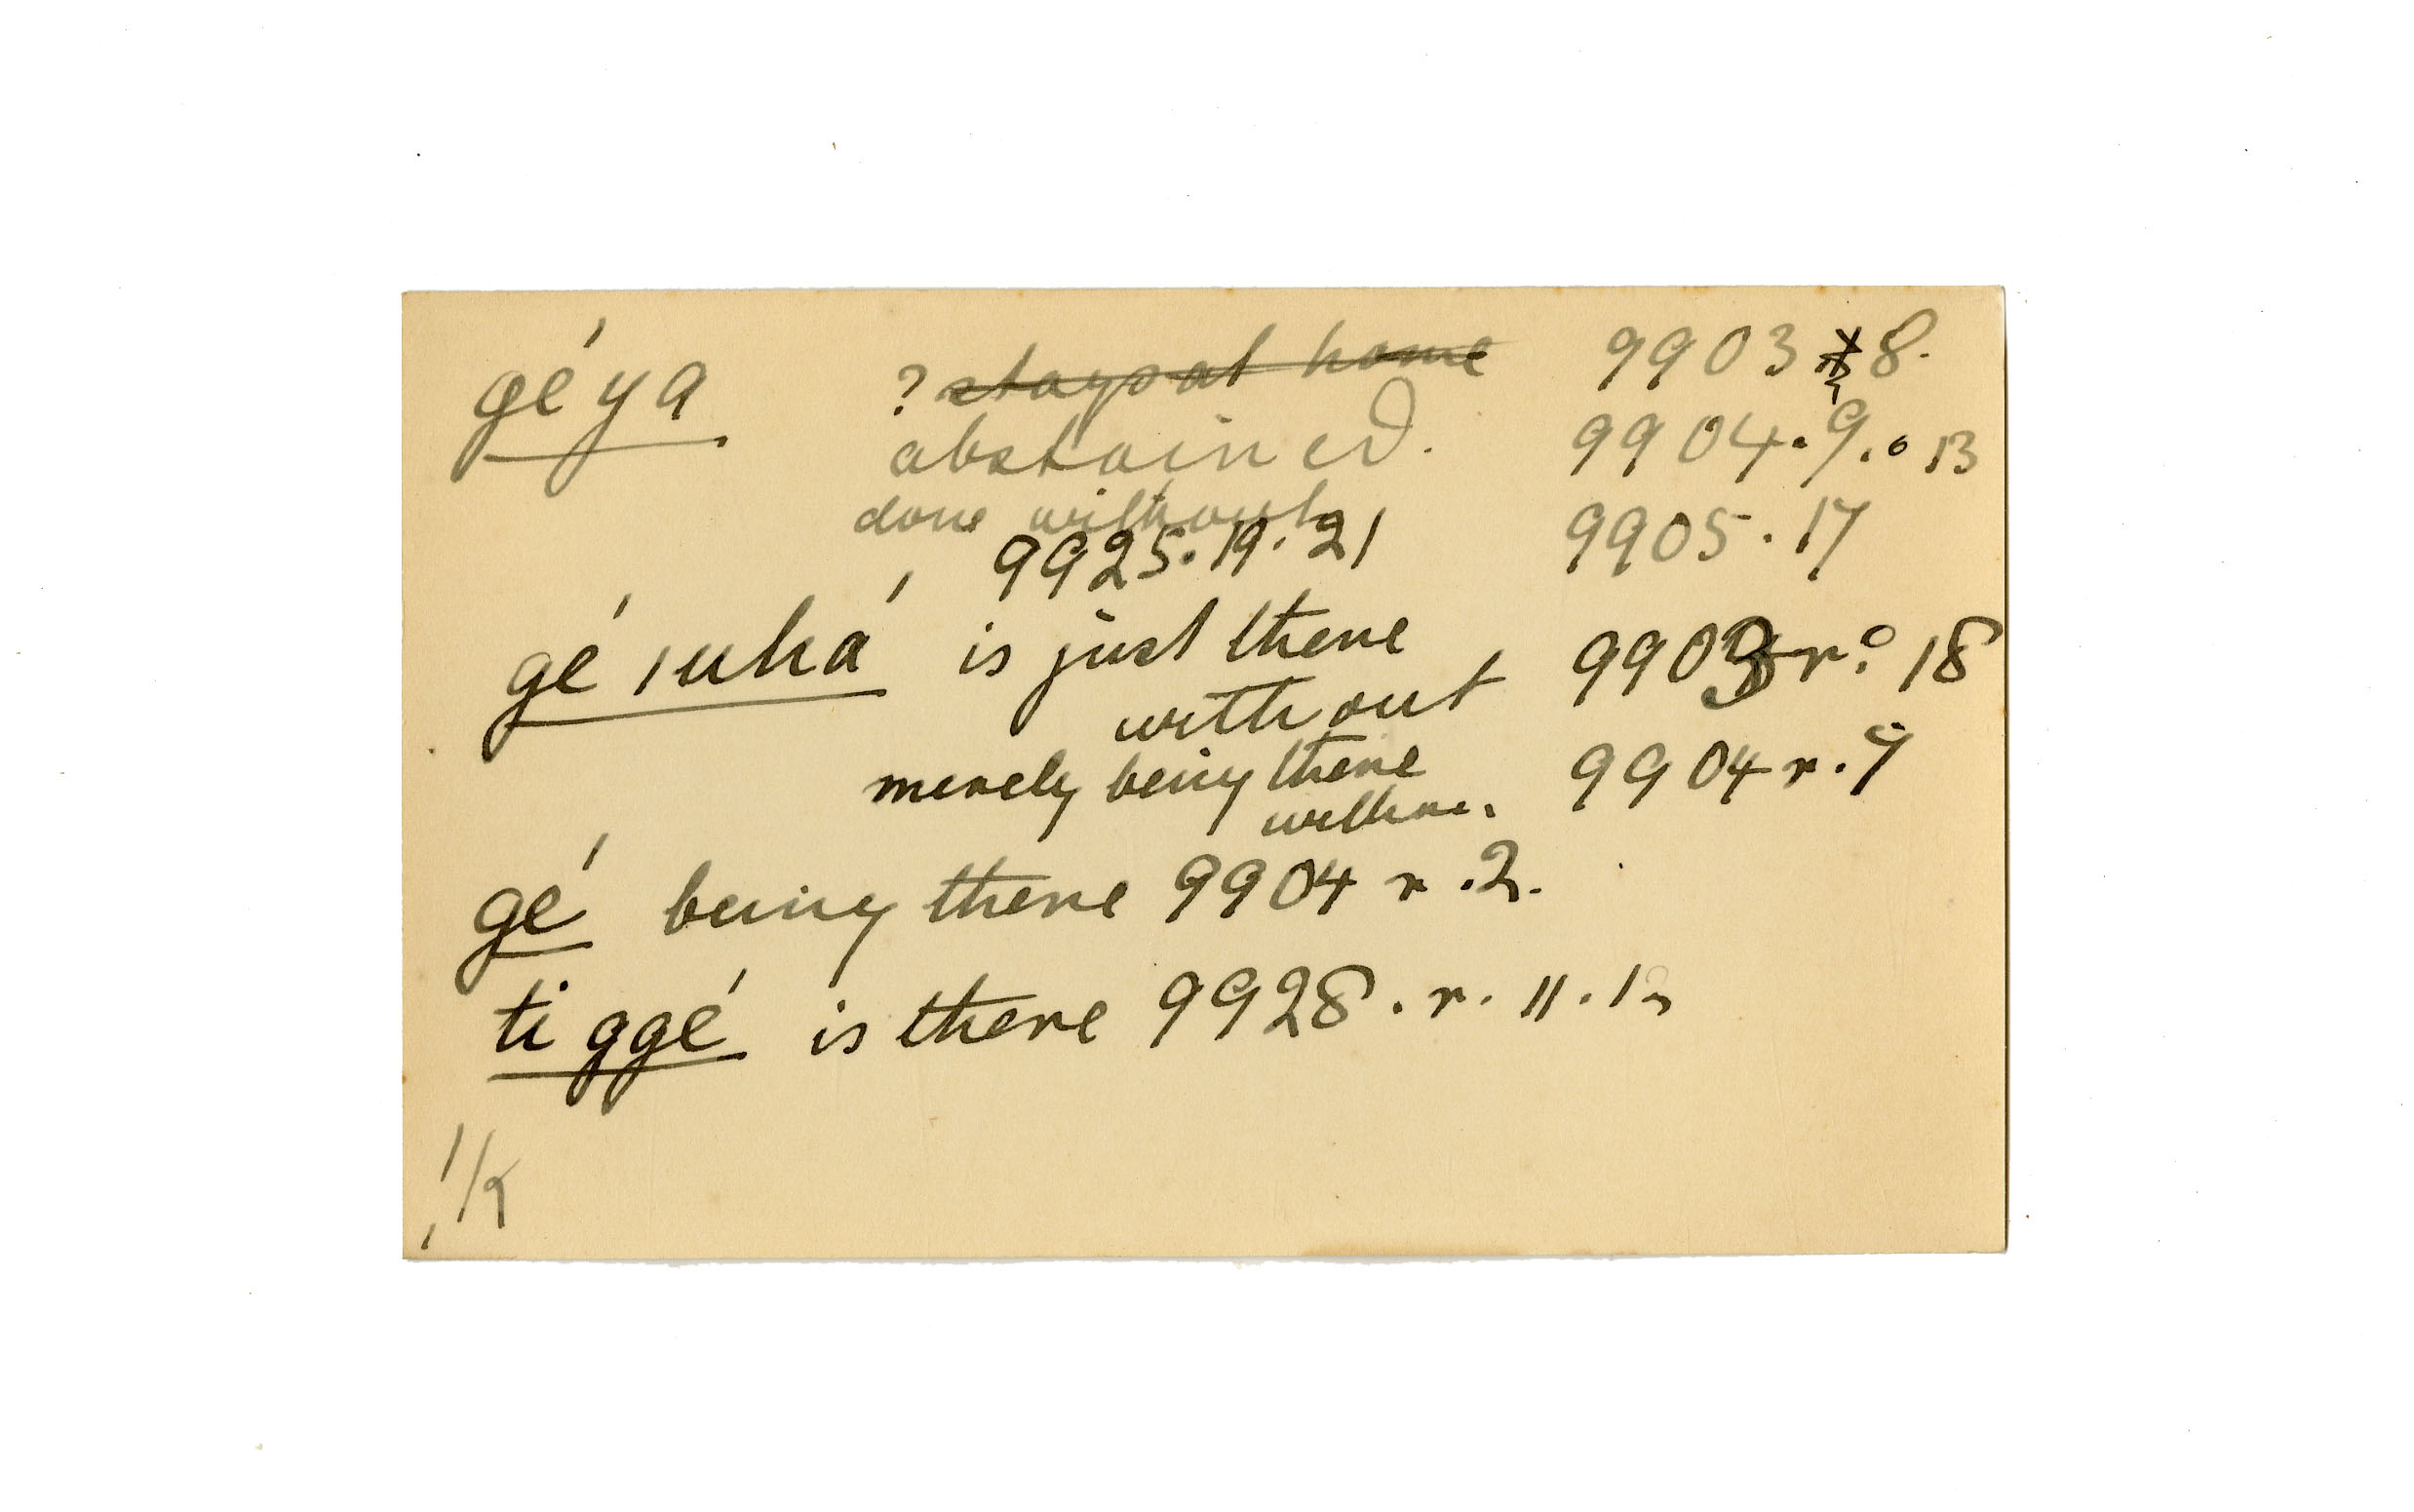 géya ? ~~stays at home~~ 9903 8.
abstained. 9904.9.. 13
done without 9905.17
9925.19.21
gé ıuhá is just there 9903 r. 18
without
merely being there 9904 r.9
gé being there 9904 r.2.
ti ggé is there 9928.r.11.12